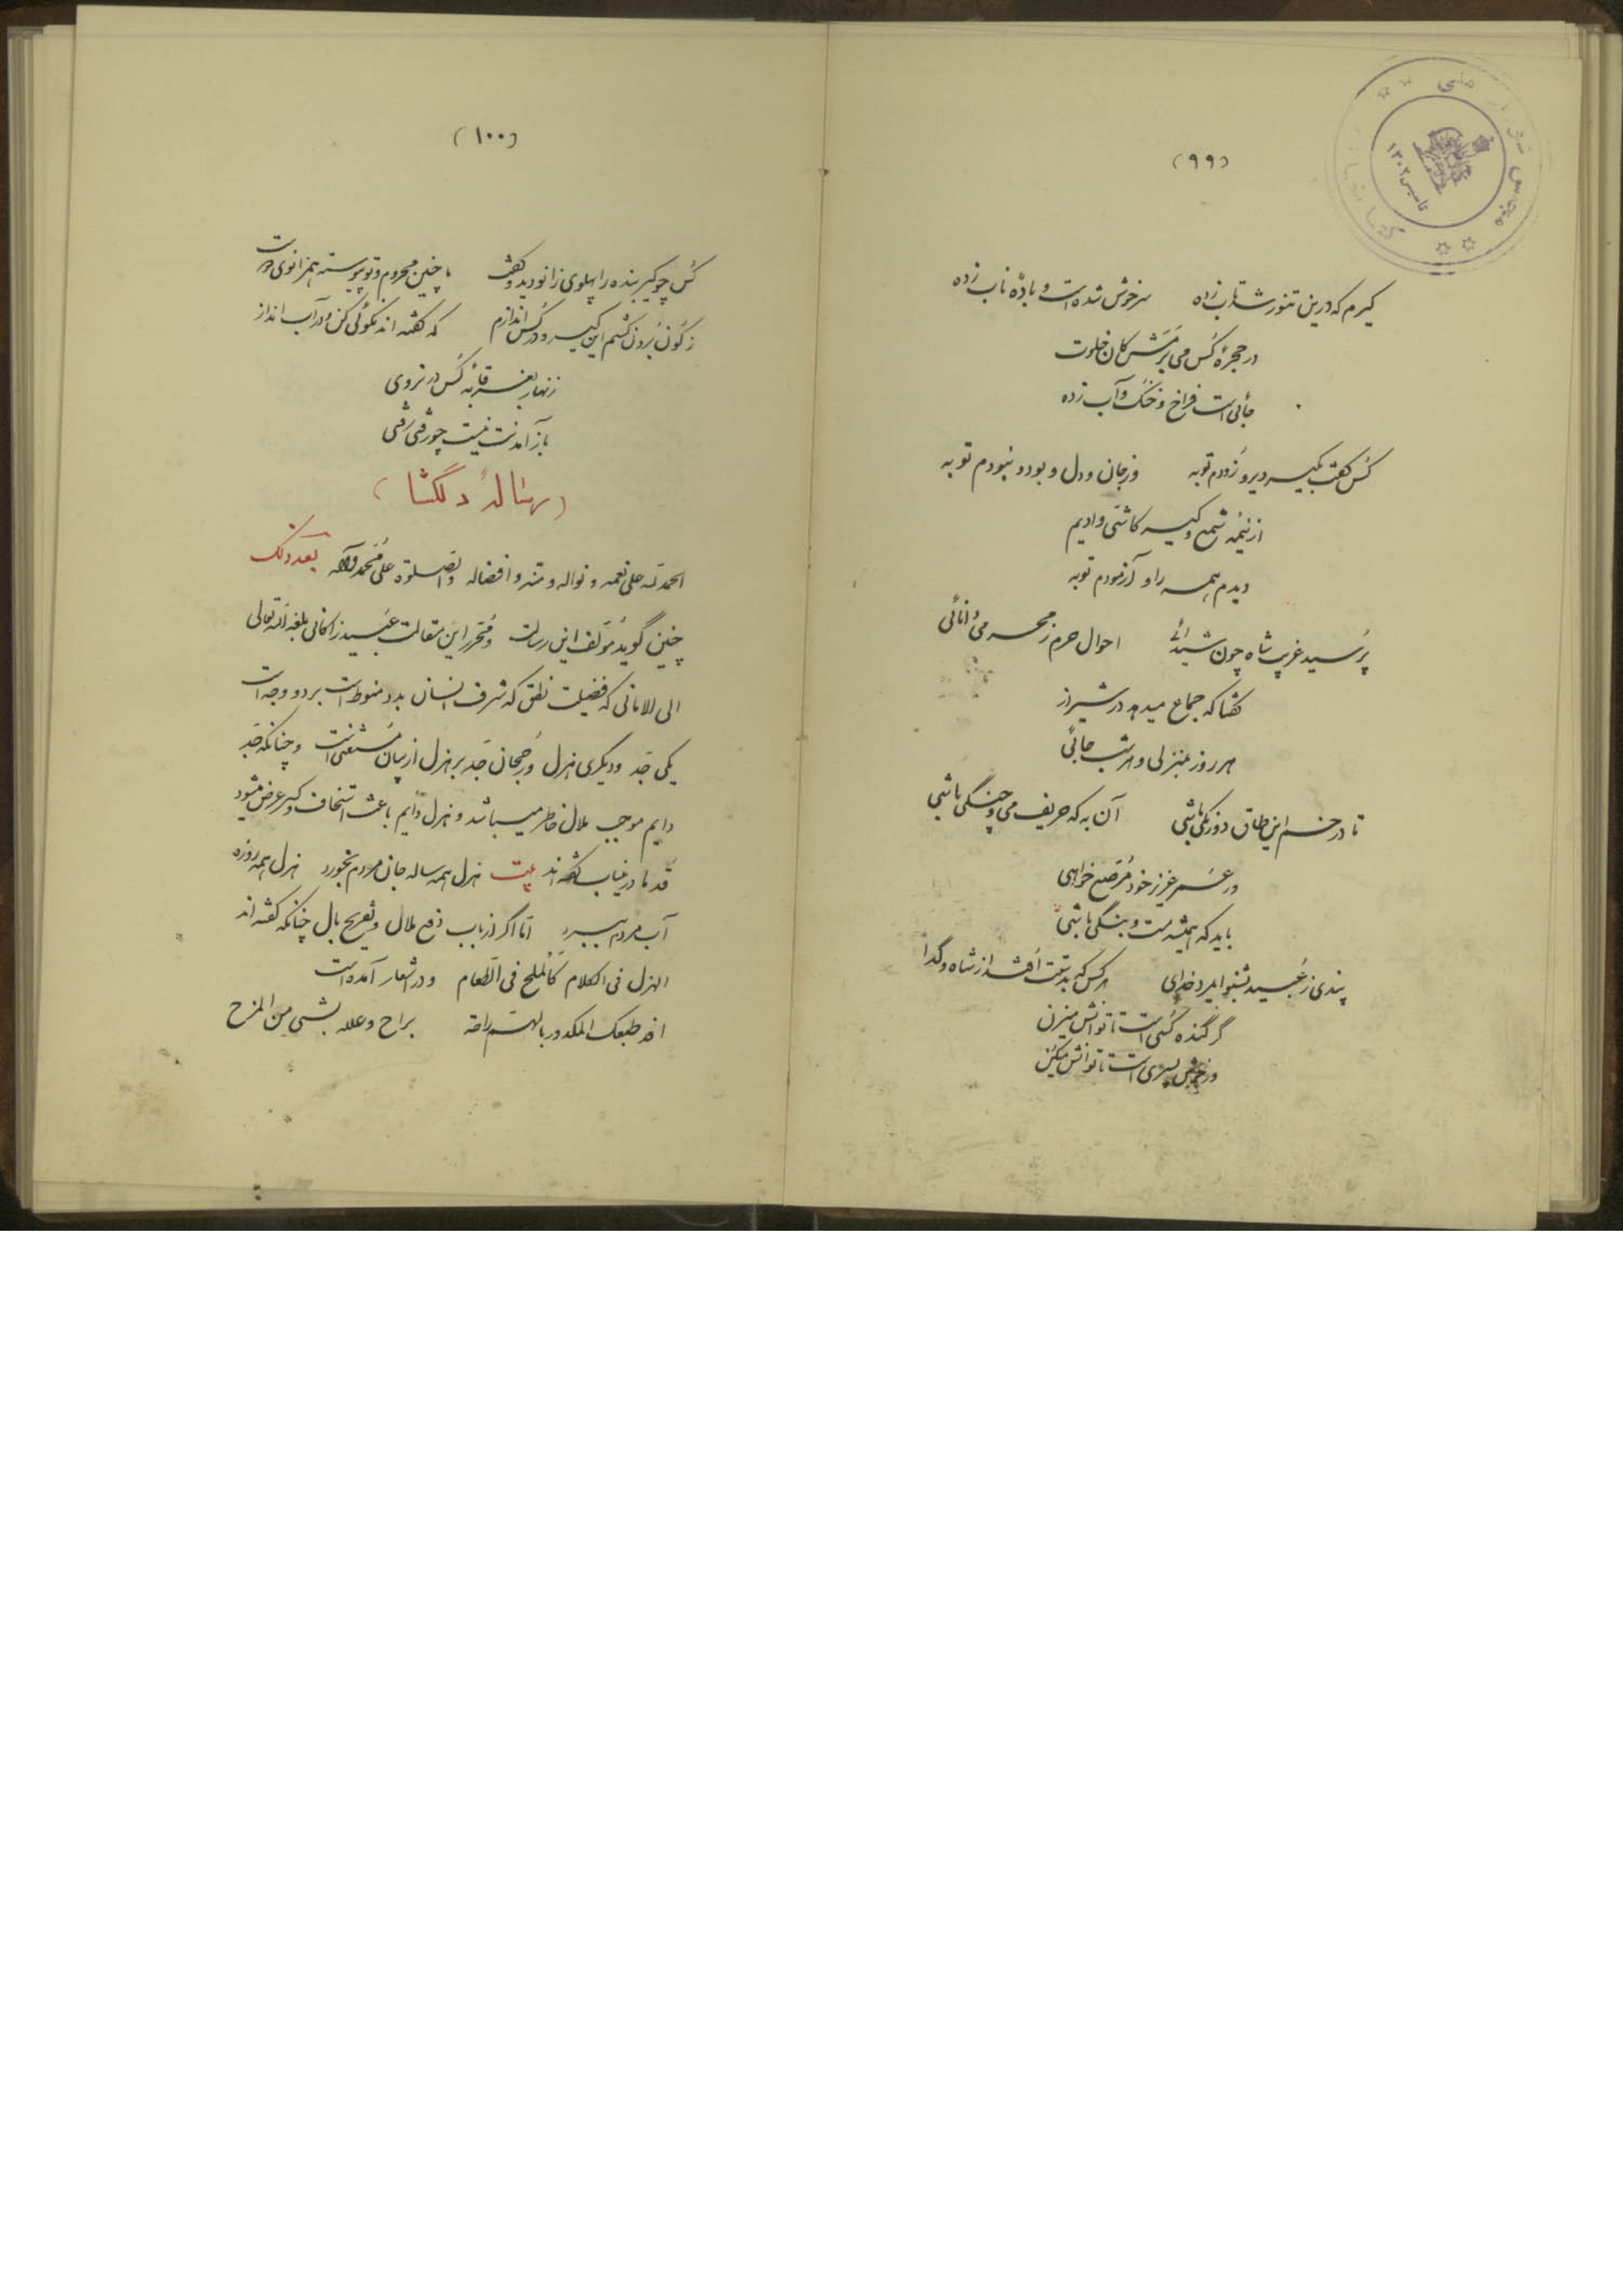 (۹۹)
کیرم که درین تنور شد تاب زده سرخوش شده است و بادهٔ ناب زده
در حجرهٔ کس می‌برمش کان خلوت
جائی است فراخ و خنک و آب زده
کس گفت بکیر دیر و زودم توبه وز جان و دل و بود و نبودم توبه
از نیمهٔ شمع و کیر کاشی وادیم
دیدم همه را و آزمودم توبه
پرسید غریب شاه چون شیدائی احوال حرم ز محرمی دانائی
گفتا که جماع میدهد در شیراز
هر روز بمنزلی و هر شب جائی
تا در خم این طاق دو رنگی باشی آن به که حریف می و چنگی باشی
ور عمر عزیز خود مرصع خواهی
باید که همیشه مست و بنگی باشی
پندی ز عبید بشنو ای مرد خدای هر کس که بدستت افتد از شاه و گدا
گر گنده کسی است تا توانش میزن
ور خوش پسری است تا توانش میکن
(۱۰۰)
کس چو کیر بنده را پهلوی زانو دید و گفت ما چنین محروم و تو پیوسته همزانوی دوست
ز کون برون کشم این کیر و در کس اندازم که گفته‌اند نکوئی کن و در آب انداز
زنهار بغرقابه کس در نروی
باز آمدنت نیست چو رفتی رفتی
(رسالهٔ دلگشا)
الحمد لله علی نعمه و نواله و منه و افضاله والصلوة علی محمد وآله بعد ذلک
چنین گوید مؤلف این رسالت و محرر این مقالت عبید زاکانی بلغه الله تعالی
الی الامانی که فضیلت نطق که شرف انسان بدو منوط است بر دو وجه است
یکی جد و دیگری هزل و رجحان جد بر هزل از بیان مستغنی است و چنانکه جد
دایم موجب ملال خاطر میباشد و هزل دایم باعث استخفاف و کسر عرض میشود
قدما درینباب گفته‌اند بیت هزل همه ساله جان مردم بخورد هزل همه روزه
آب مردم ببرد اما اگر از باب دفع ملال و تفریح بال چنانکه گفته‌اند
الهزل فی الکلام کالملح فی الطعام و در اشعار آمده است
افد طبعک المکدور بالهم راحة براح و علله بشیی من المزح